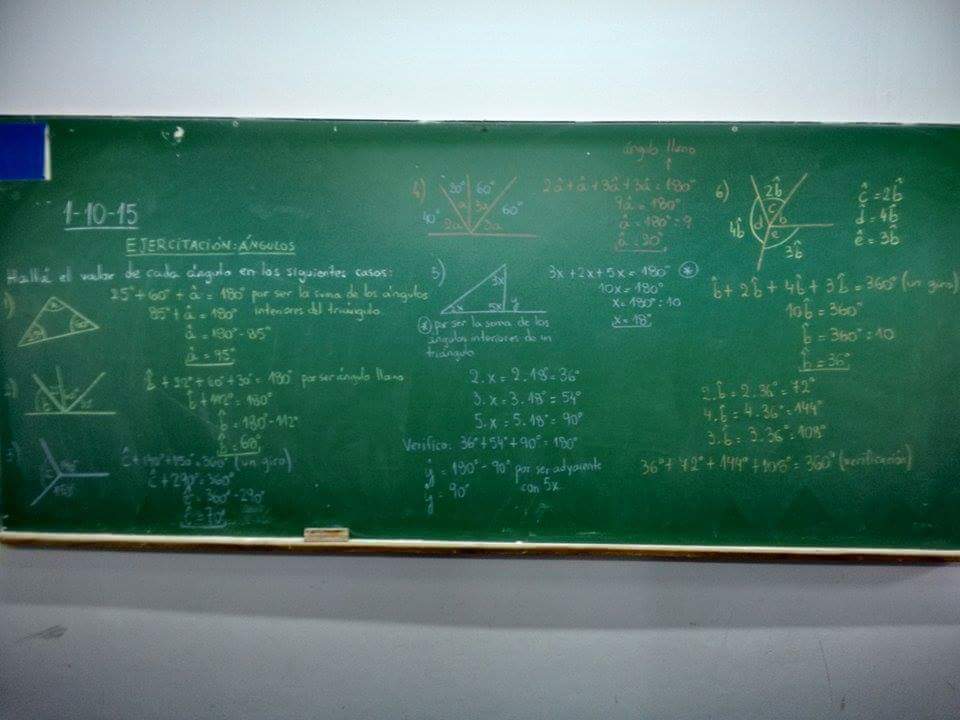 1-10-15
EJERCITACIÓN: ÁNGULOS
Hallá el valor de cada ángulo en los siguientes casos:
1)
25° + 60° + â = 180° por ser la suma de los ángulos
interiores del triángulo.
85° + â = 180°
â = 180° - 85°
â = 95°
2)
b̂ + 22° + 60° + 30° = 180° por ser ángulo llano
b̂ + 112° = 180°
b̂ = 180° - 112°
b̂ = 68°
3)
150°
ĉ + 140° + 150° = 360° (un giro)
ĉ + 290° = 360°
ĉ = 360° - 290°
ĉ = 70°
4)
40° 20° 60° 60°
2a a 3a 3a
ángulo llano
2â + â + 3â + 3â = 180°
9â = 180°
â = 180° : 9
â = 20°
5)
3x
2x 5x y
3x + 2x + 5x = 180° *
10x = 180°
x = 180° : 10
x = 18°
* por ser la suma de los
ángulos interiores de un
triángulo
2.x = 2.18° = 36°
3.x = 3.18° = 54°
5.x = 5.18° = 90°
Verifico: 36° + 54° + 90° = 180°
ŷ = 180° - 90° por ser adyacente
con 5x
ŷ = 90°
6)
2b̂
c b
4b̂ d e
3b̂
ĉ = 2b̂
d̂ = 4b̂
ê = 3b̂
b̂ + 2b̂ + 4b̂ + 3b̂ = 360° (un giro)
10b̂ = 360°
b̂ = 360° : 10
b̂ = 36°
2.b̂ = 2.36° = 72°
4.b̂ = 4.36° = 144°
3.b̂ = 3.36° = 108°
36° + 72° + 144° + 108° = 360° (verificación)